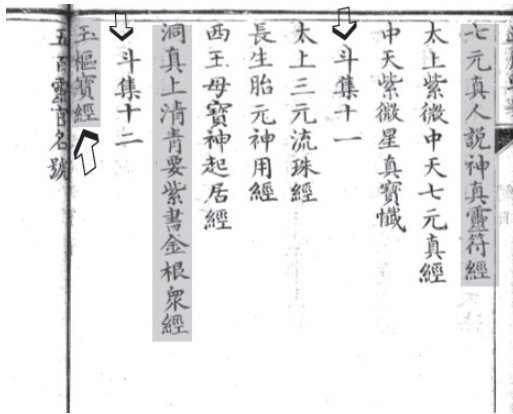 七元真人說神真靈符經
太上紫微中天七元真經
中天紫微星真寶懺
斗集十一
太上三元流珠經
長生胎元神用經
西王母寶神起居經
洞真上清青要紫書金根眾經
斗集十二
玉樞寶經
五百靈官名號